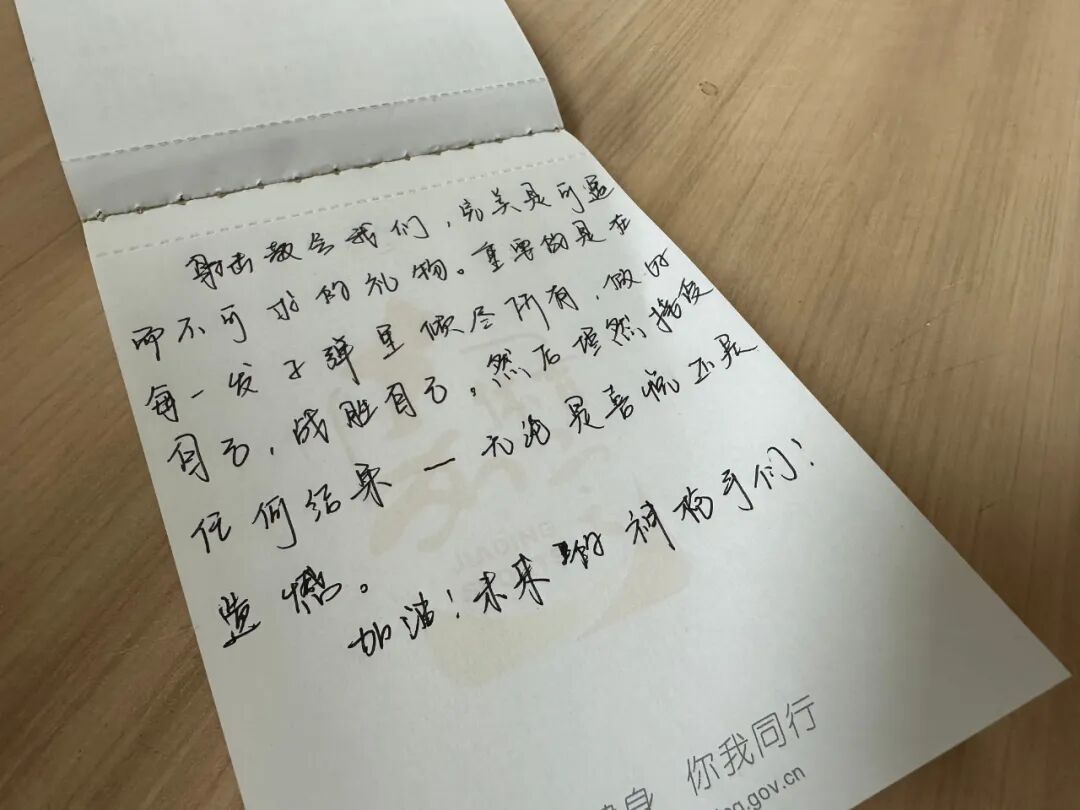 射击教会我们，完美是可遇
而不可求的礼物。重要的是在
每一发子弹里倾尽所有，做好
自己，战胜自己，然后坦然接受
任何结果一无论是喜悦还是
遗憾。
加油！未来的神枪手们！
身 你我同行
.gov.cn